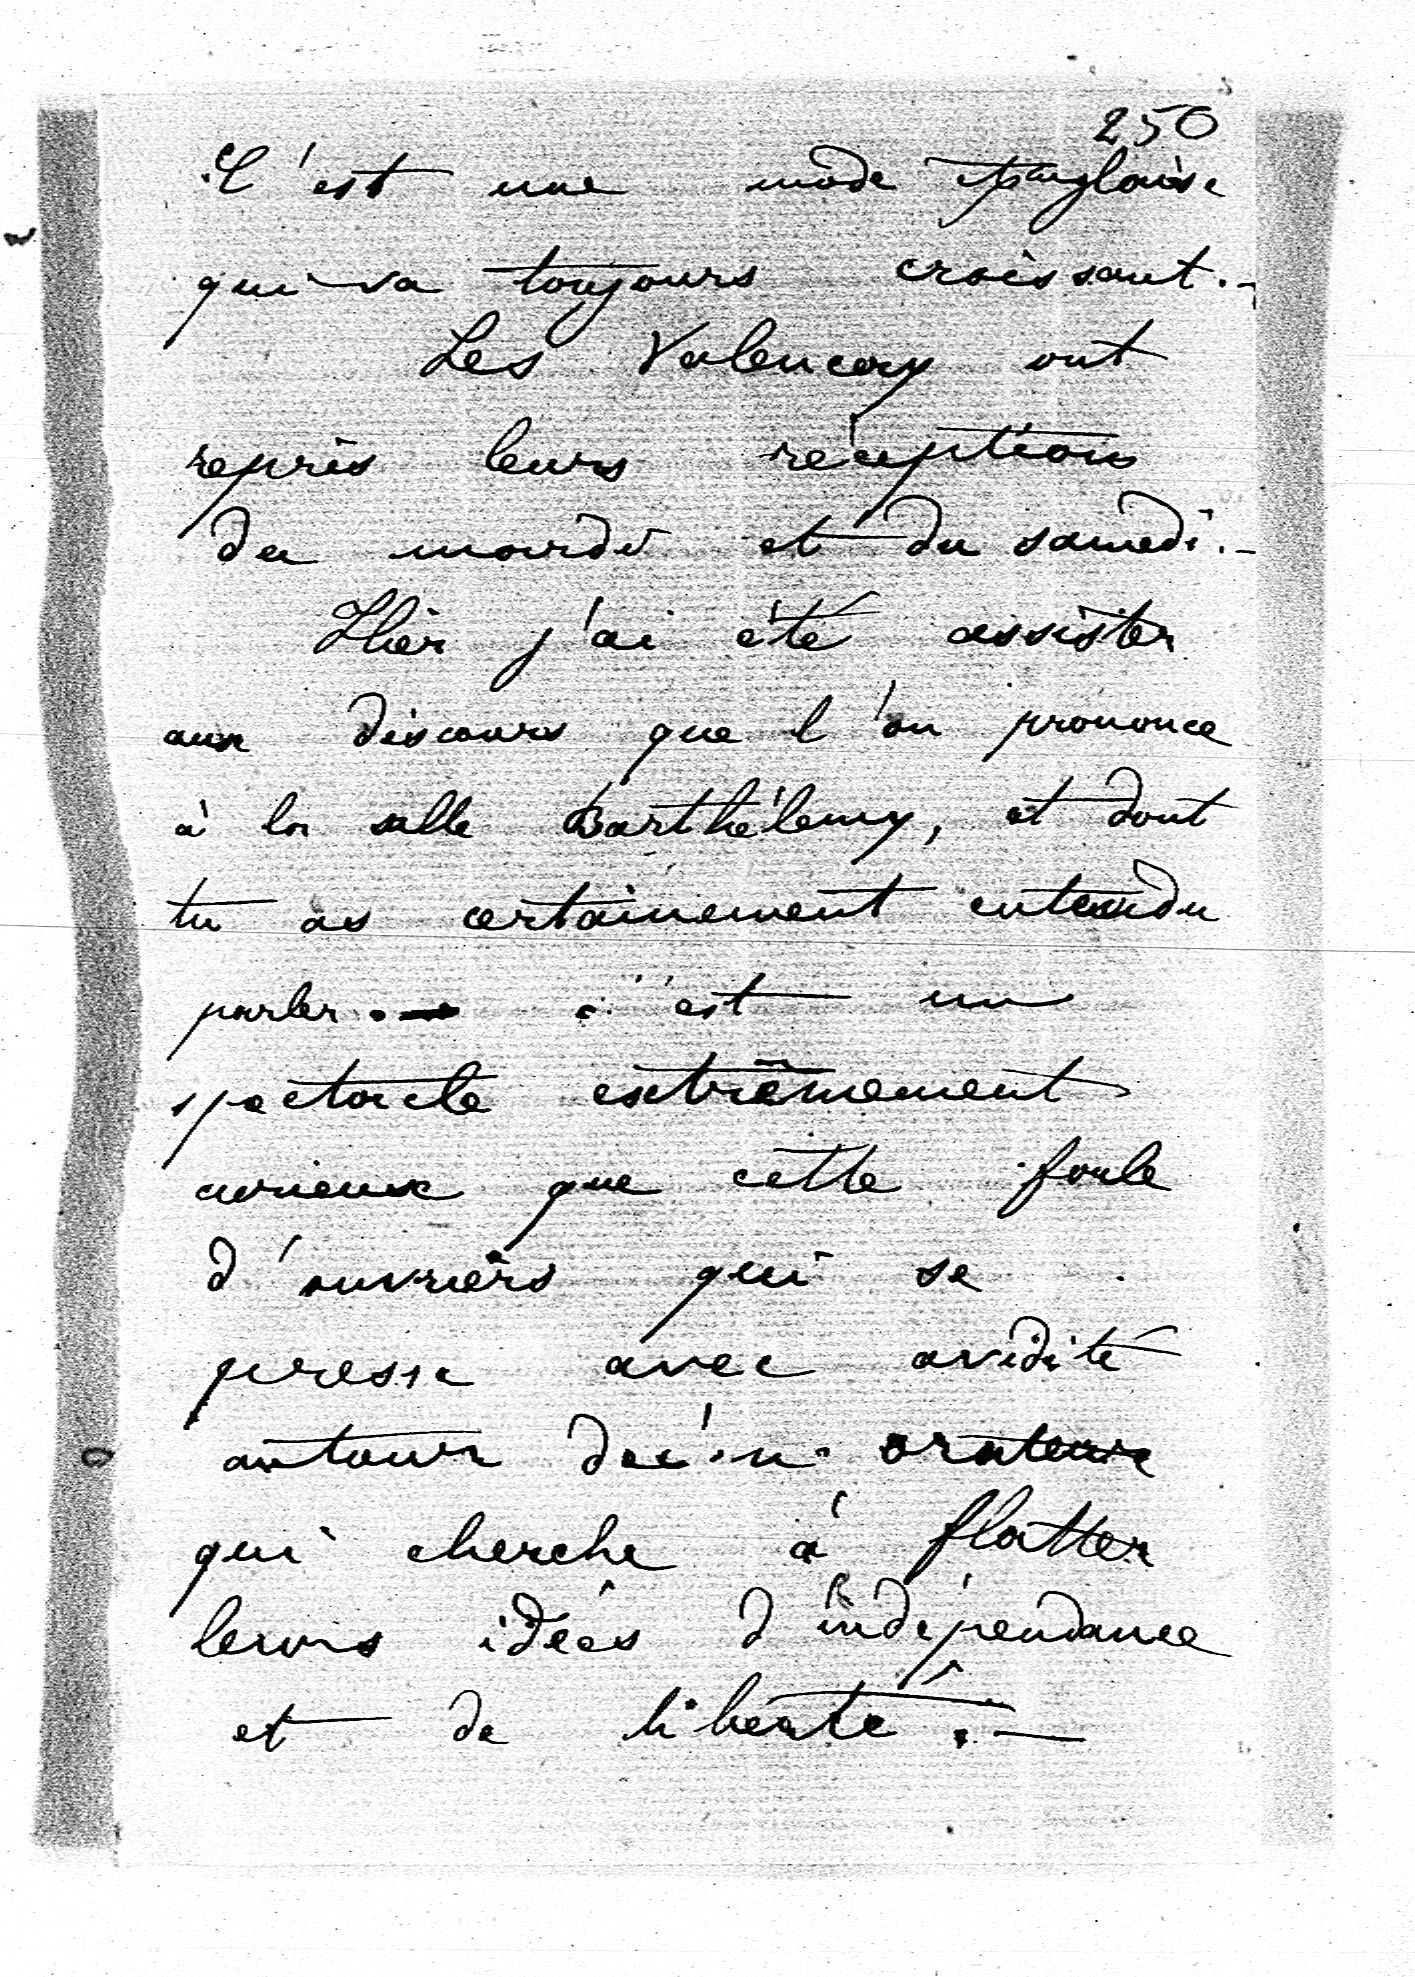 250
C'est une mode Anglaise
qui va toujours croissant. -
Les Valencay ont
repris leurs réceptions
du mardi et du samedi. -
Hier j'ai été assister
aux discours que l'on prononce
à la salle Barthélemy, et dont
tu as certainement entendu
parler. - c'est un
spectacle extrêmement
curieux que cette foule
d'ouvriers qui se
presse avec avidité
autour d'un orateur
qui cherche à flatter
leurs idées d'indépendance
et de liberté. -